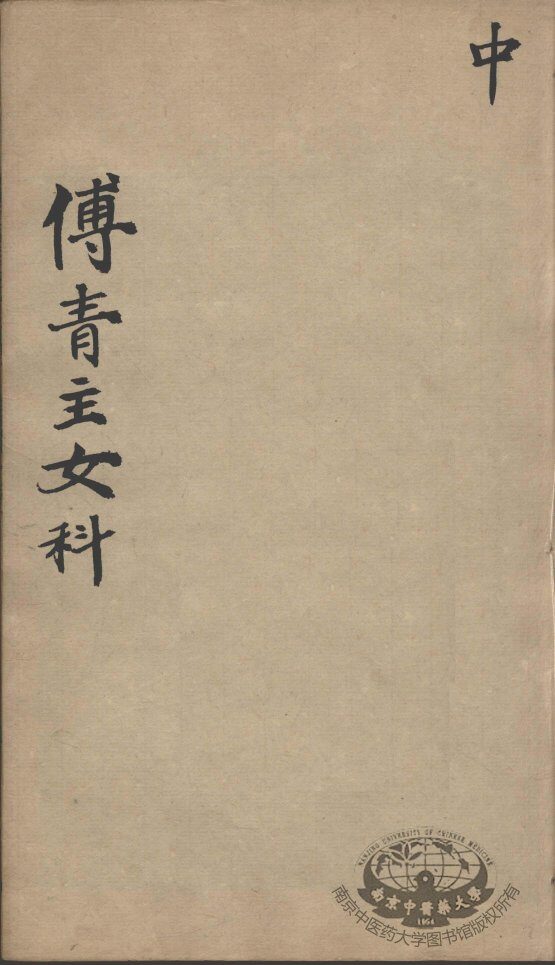 中
傅青主女科
NANJING UNIVERSITY OF CHINESE MEDICINE
南京中醫藥大學
1954
南京中医药大学图书馆版权所有